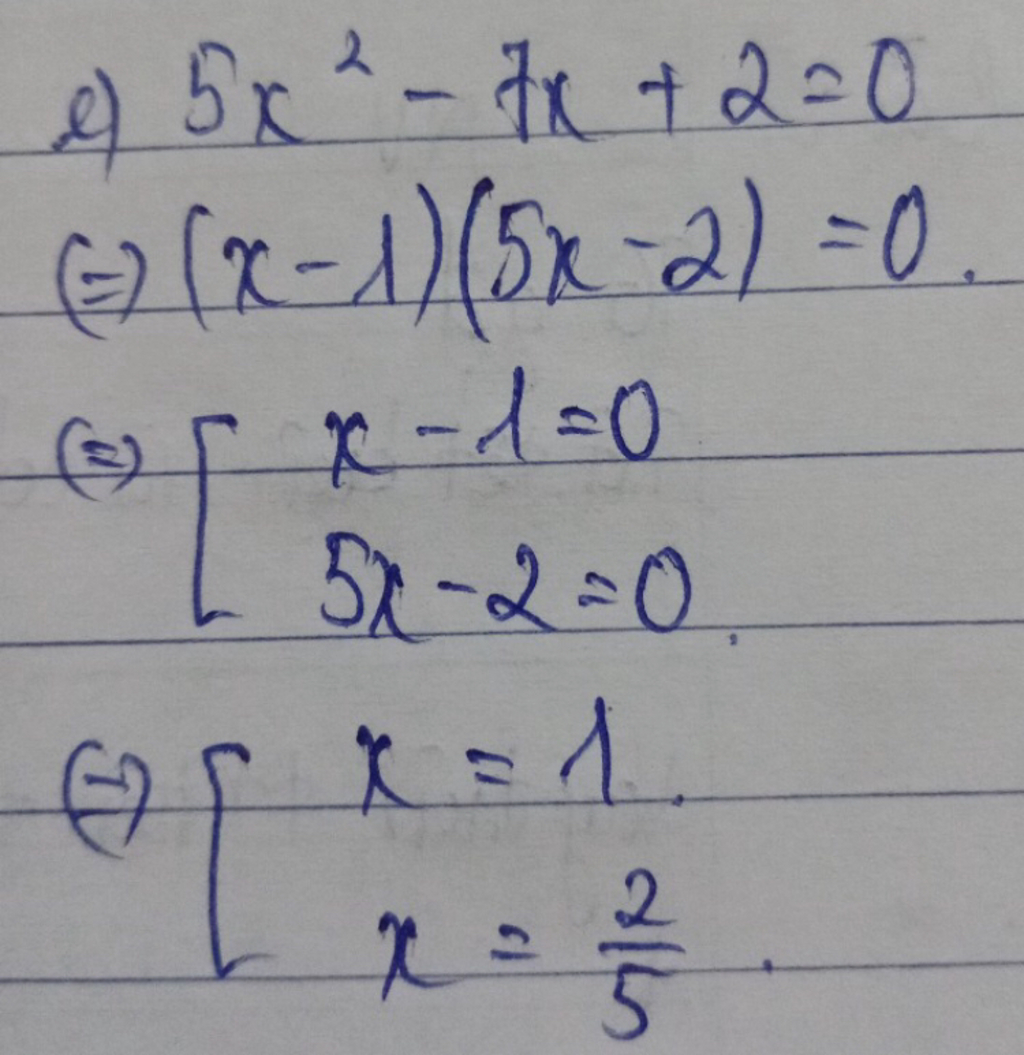 e) 5x² - 7x + 2 = 0
(=) (x - 1)(5x - 2) = 0.
(=) [ x - 1 = 0
5x - 2 = 0.
(=) [ x = 1.
x = 2/5.